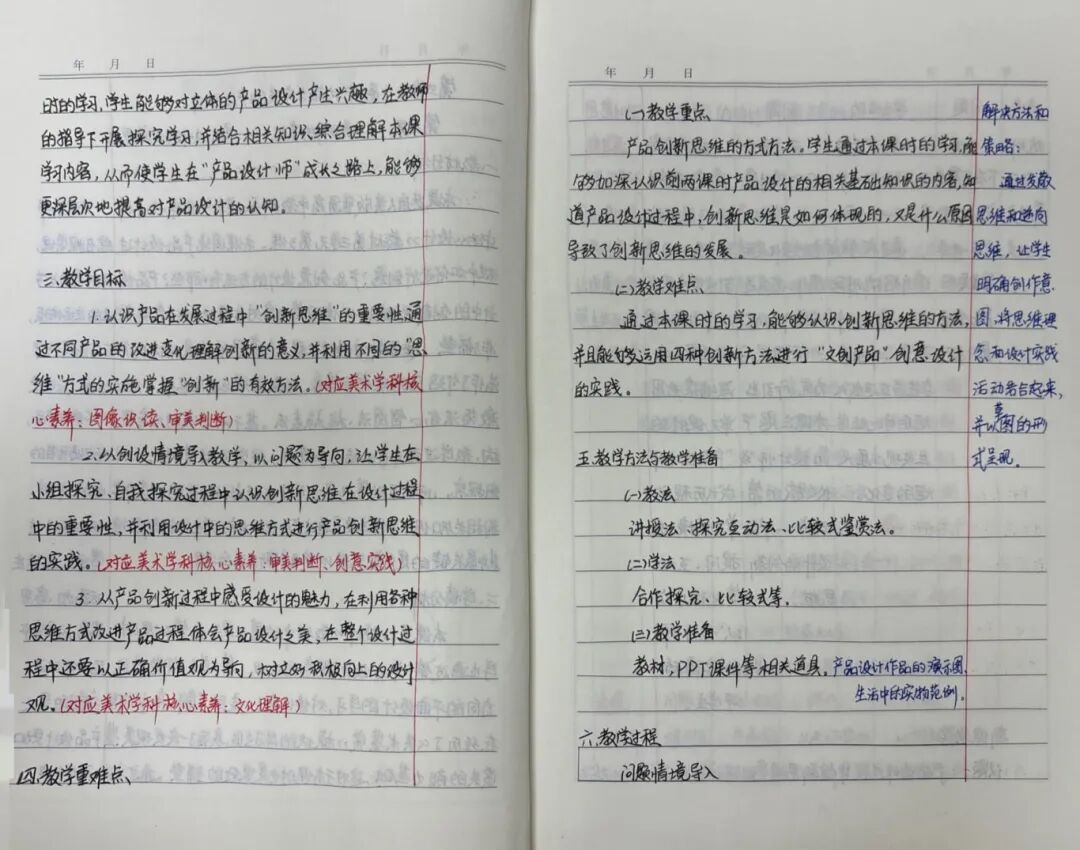 年 月 日
时的学习,学生能够对立体的产品设计产生兴趣,在教师
的指导下开展探究学习,并结合相关知识、综合理解本课
学习内容,从而使学生在“产品设计师”成长之路上,能够
更深层次地提高对产品设计的认知。
三、教学目标
1.认识产品在发展过程中“创新思维”的重要性,通
过不同产品的改进变化理解创新的意义,并利用不同的“思
维”方式的实施掌握“创新”的有效方法。(对应美术学科核
心素养:图像识读、审美判断)
2.以创设情境导入教学、以问题为导向,让学生在
小组探究、自我探究过程中认识创新思维在设计过程
中的重要性,并利用设计中的思维方式进行产品创新思维
的实践。(对应美术学科核心素养:审美判断、创意实践)
3.从产品创新过程中感受设计的魅力,在利用各种
思维方式改进产品过程体会产品设计之美、在整个设计过
程中还要以正确价值观为导向,树立好积极向上的设计
观。(对应美术学科核心素养:文化理解)
四、教学重难点、
年 月 日
(一)教学重点
产品创新思维的方式方法。学生通过本课时的学习,能
够加深认识前两课时产品设计的相关基础知识的内容,知
道产品设计过程中,创新思维是如何体现的,又是什么原因
导致了创新思维的发展。
(二)教学难点
通过本课时的学习,能够认识创新思维的方法,
并且能够运用四种创新方法进行“文创产品”创意设计
的实践。
五、教学方法与教学准备
(一)教法
讲授法、探究互动法、比较式鉴赏法。
(二)学法
合作探究、比较式等。
(三)教学准备
教材,PPT课件等相关道具。产品设计作品的演示图
生活中的实物范例。
六、教学过程
问题情境导入
解决方法和
策略:
通过发散
思维和逆向
思维,让学生
明确创作意
图,将思维理
念和设计实践
活动结合起来,
并以草图的形
式呈现。